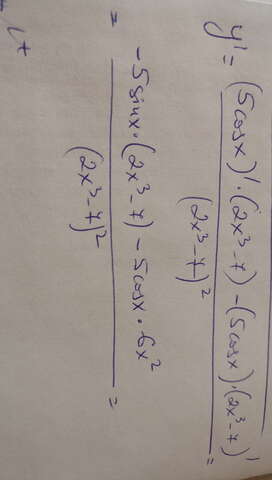 y' = (5cosx)'·(2x³-7)-(5cosx)·(2x³-7)' =
(2x³-7)²
= -5sinx·(2x³-7)-5cosx·6x² =
(2x³-7)²